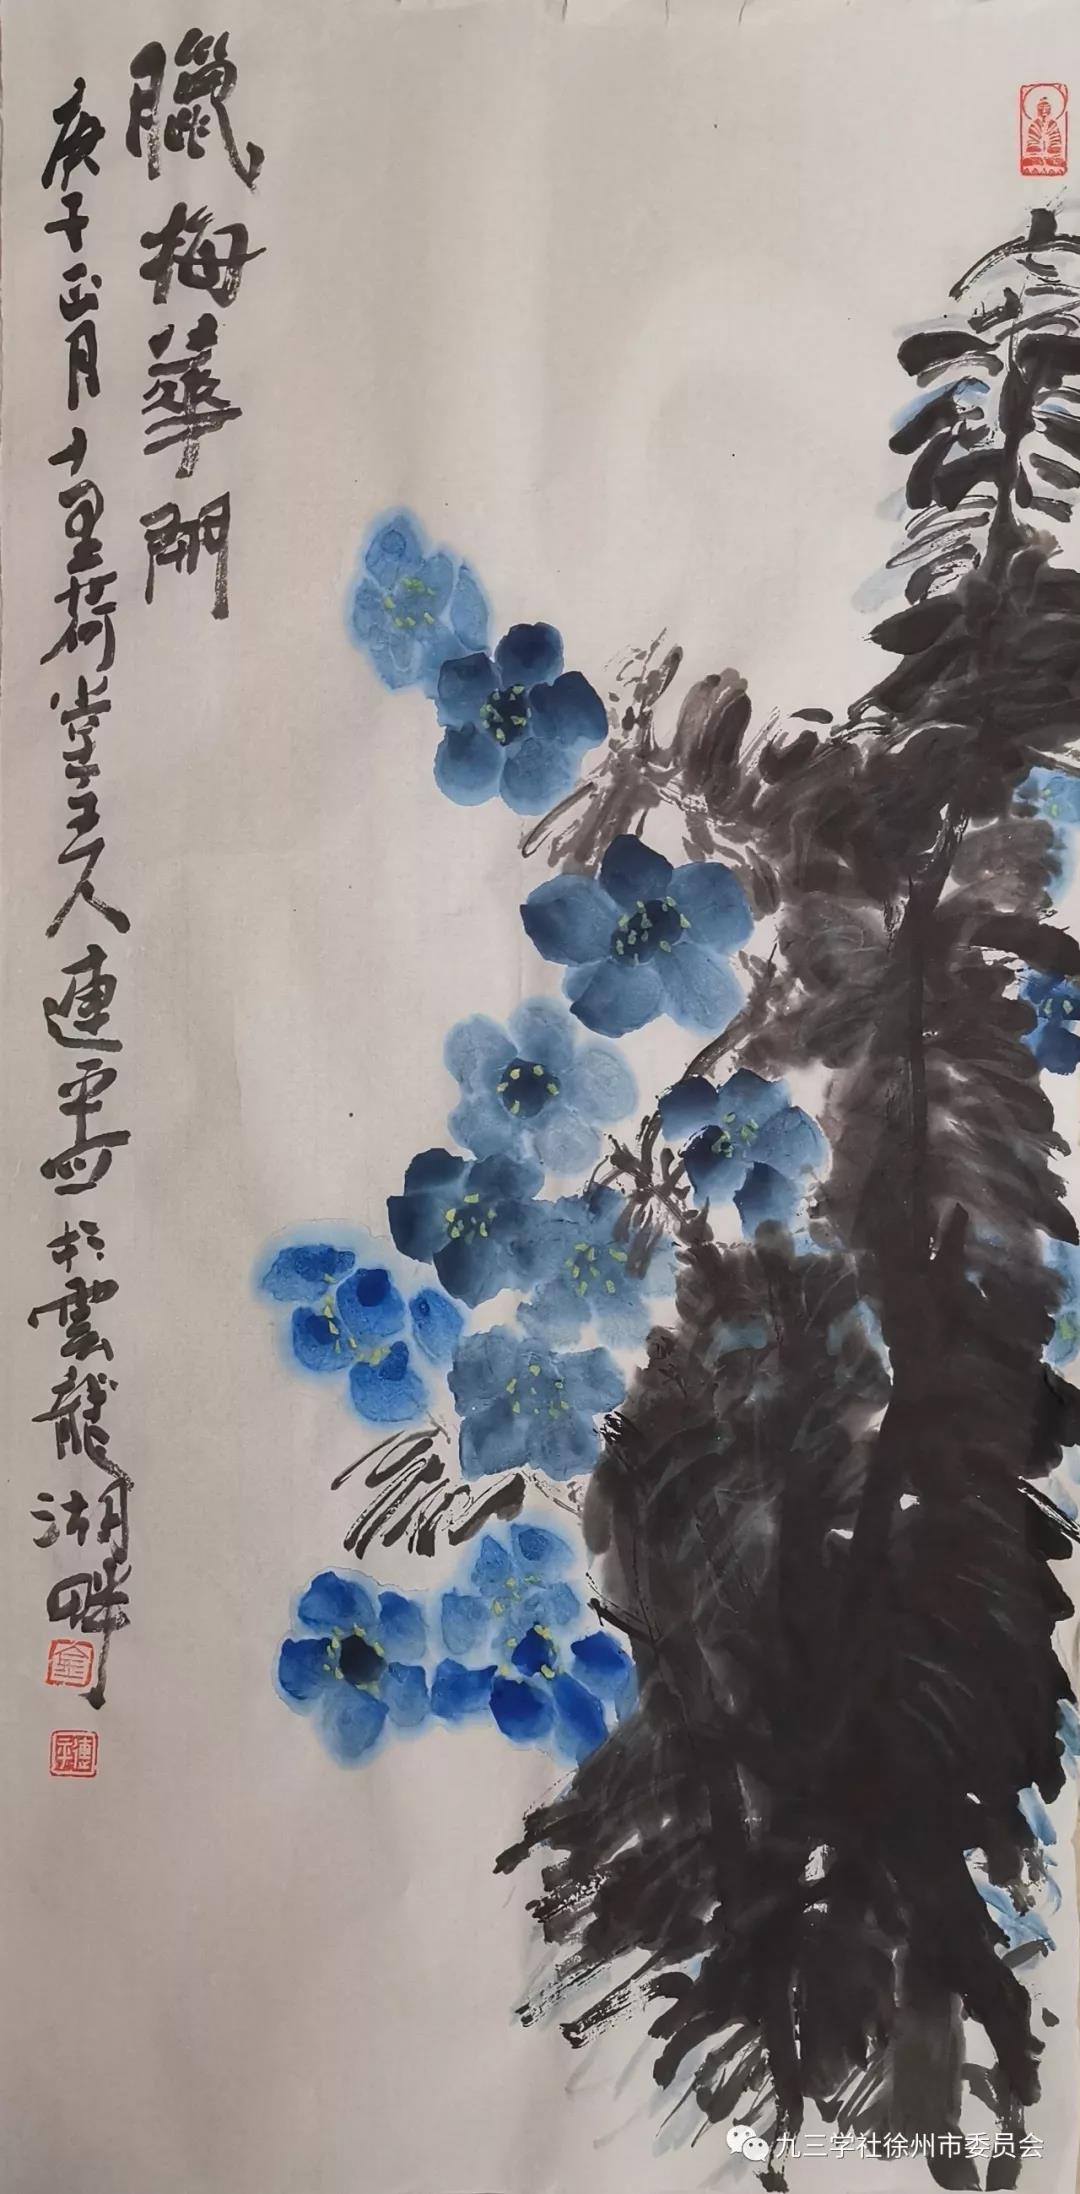 臘梅華開
庚子正月十里荷堂主人連平畫於雲龍湖畔
連平
九三学社徐州市委员会